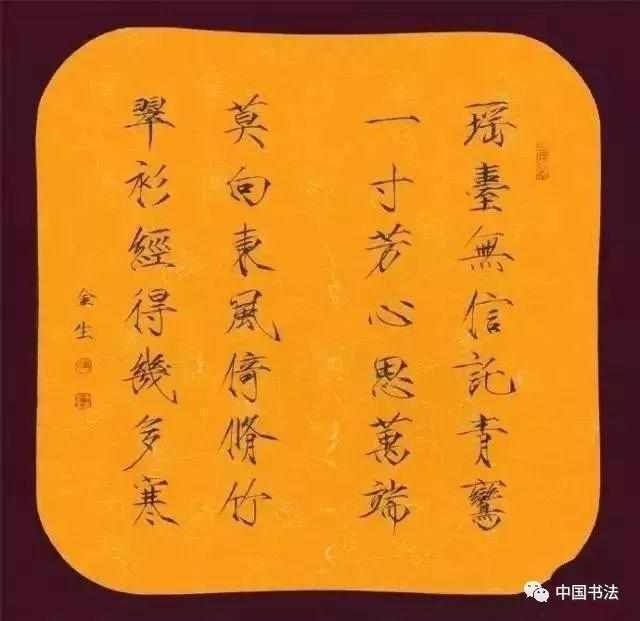 瑶臺無信託青鸞
一寸芳心思萬端
莫向東風倚脩竹
翠衫經得幾多寒
金生
中国书法